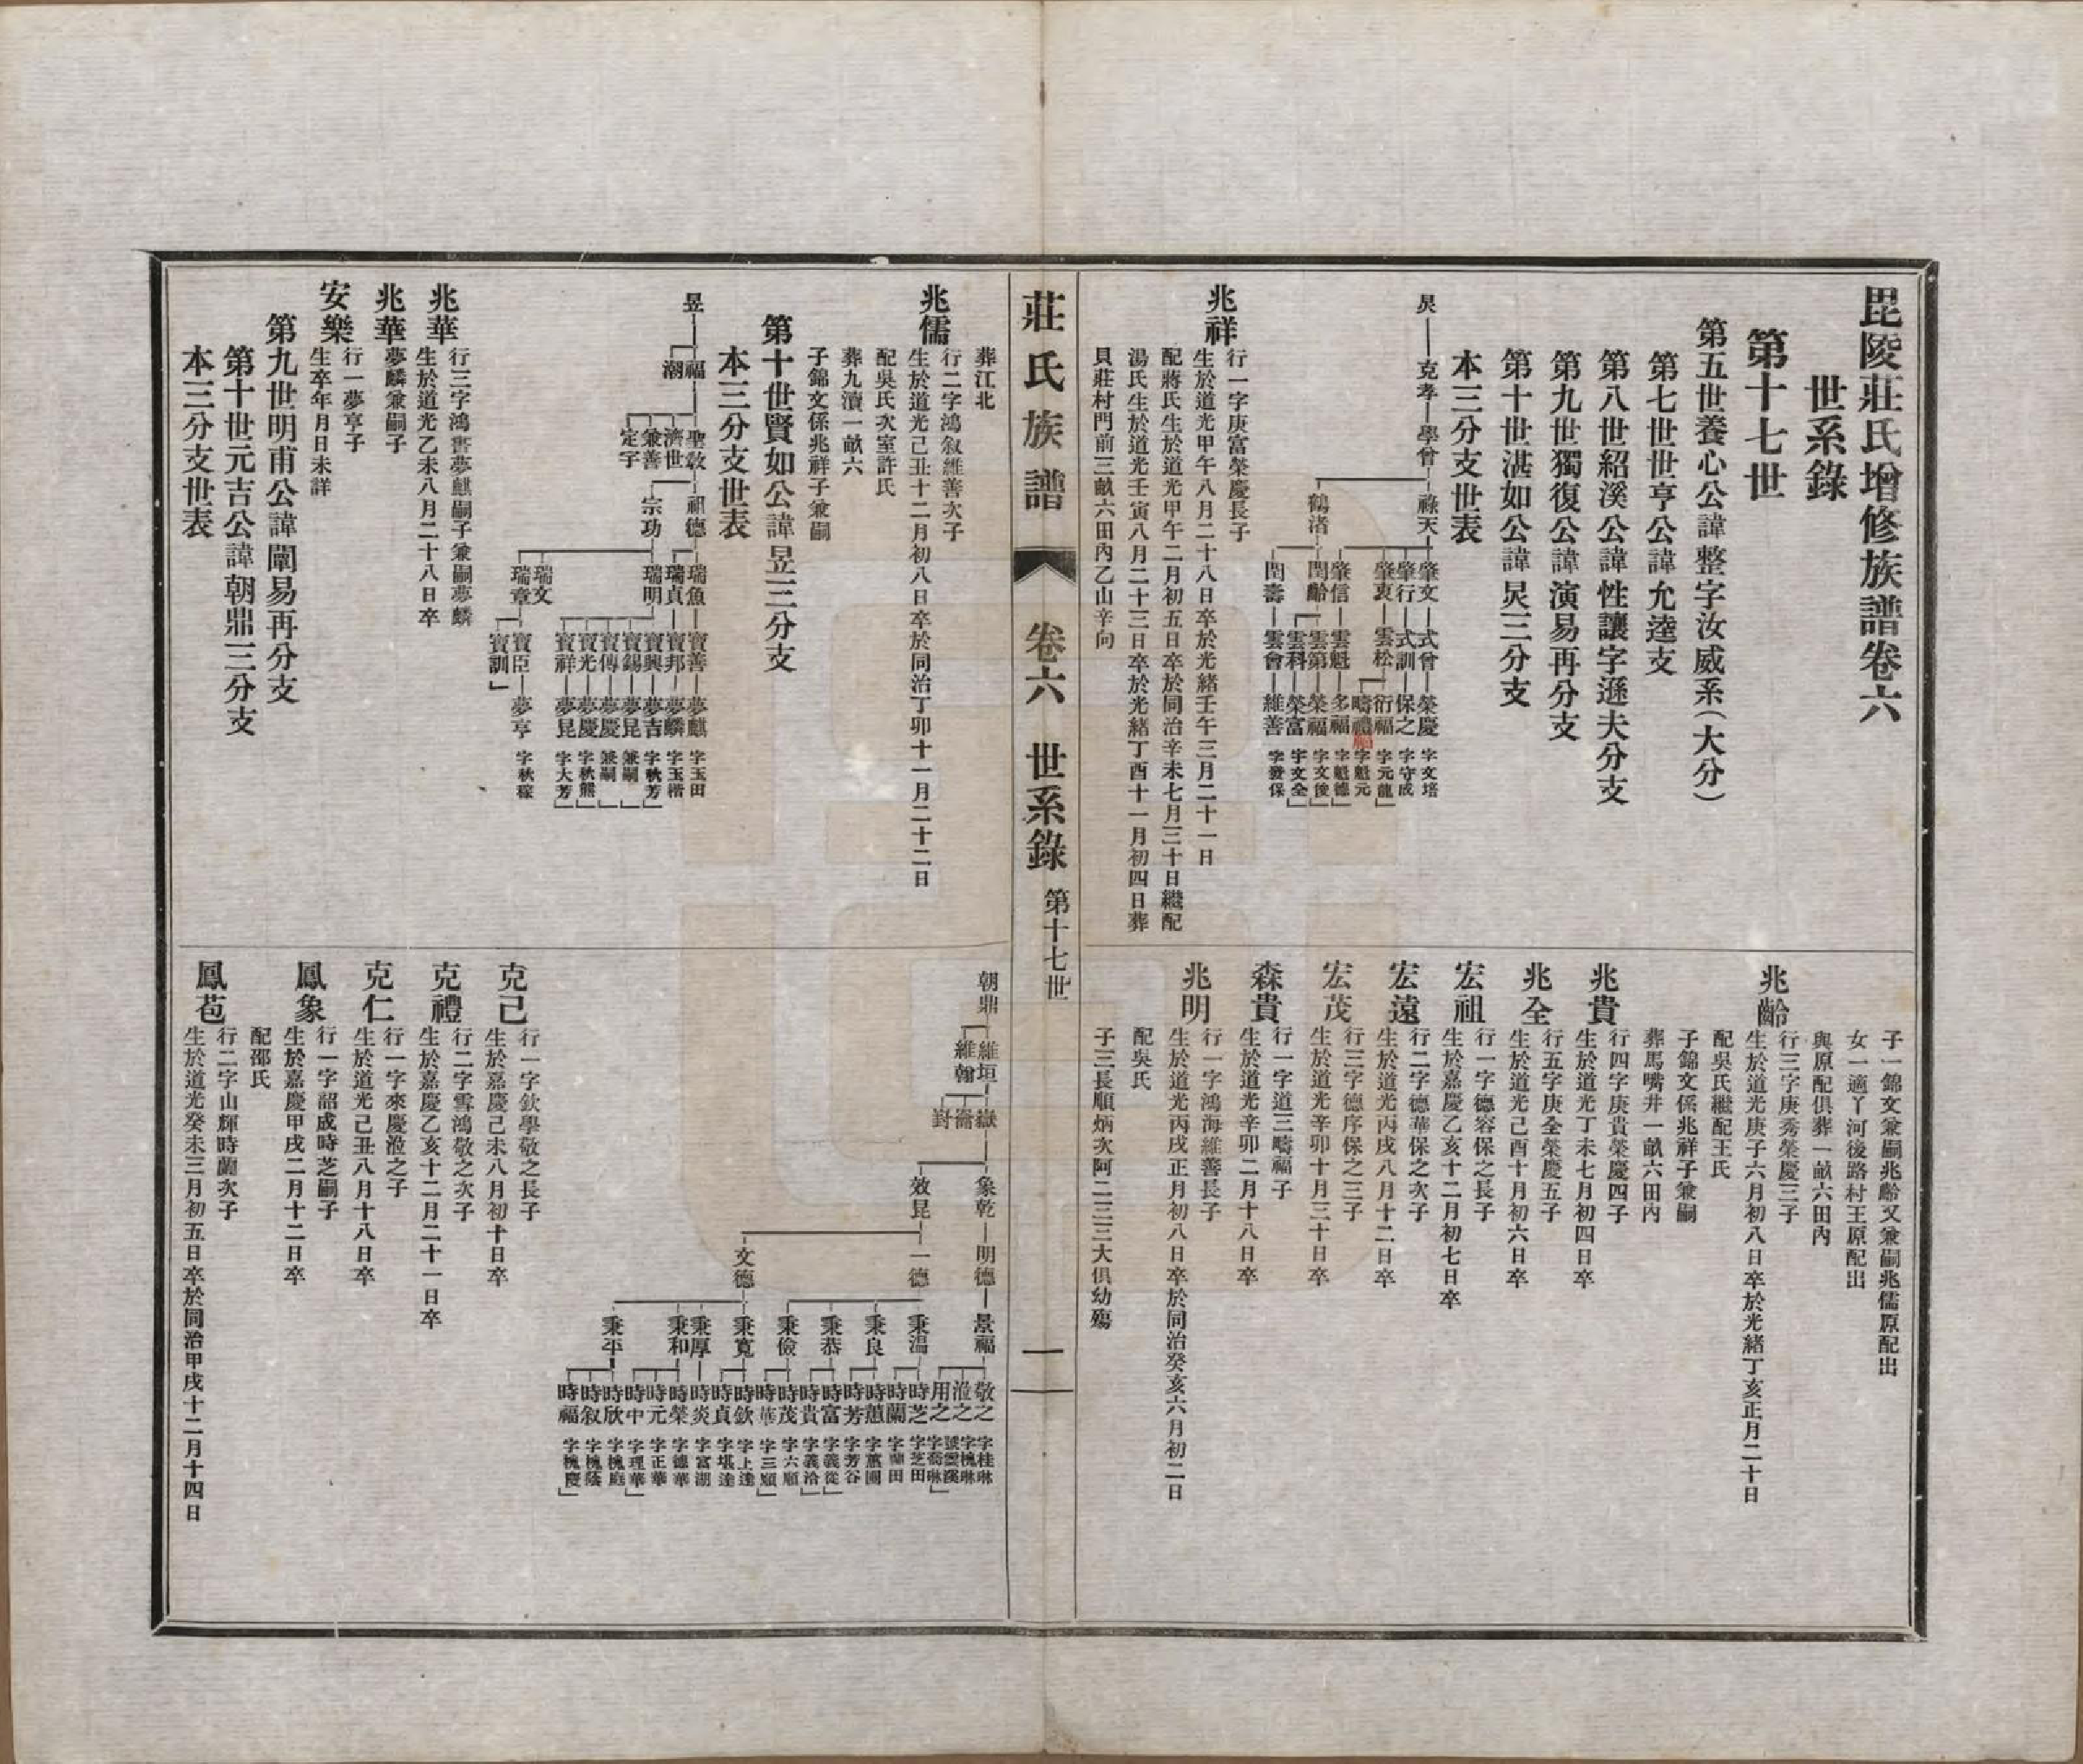 毘陵莊氏增修族譜卷六
世系錄
第十七世
第五世養心公諱整字汝威系(大分)
第七世世亨公諱允逵支
第八世紹溪公諱性讓字遜夫分支
第九世獨復公諱演易再分支
第十世湛如公諱炅三分支
本三分支世表
炅 克孝 學曾 祿天 肇文 式曾 榮慶 字文培
肇行 式訓 保之 字守成
肇衷 雲松 衍福 字元龍
疇禮 福 字魁元
肇信 雲魁 多福 字魁德
鶴渚 閏齡 雲第 榮福 字文俊
雲科 榮富 字文全
閏壽 雲會 維善 字發保
兆祥
行一字庚富榮慶長子
生於道光甲午八月二十八日卒於光緒壬午三月二十一日
配蔣氏生於道光甲午二月初五日卒於同治辛未七月三十日繼配
湯氏生於道光壬寅八月二十三日卒於光緒丁酉十一月初四日葬
貝莊村門前三畝六田內乙山辛向
子一錦文兼嗣兆齡又兼嗣兆儒原配出
女一適丫河後路村王原配出
與原配俱葬一畝六田內
兆齡
行三字庚秀榮慶三子
生於道光庚子六月初八日卒於光緒丁亥正月二十日
配吳氏繼配王氏
子錦文係兆祥子兼嗣
葬馬嘴井一畝六田內
兆貴
行四字庚貴榮慶四子
生於道光丁未七月初四日卒
兆全
行五字庚全榮慶五子
生於道光己酉十月初六日卒
宏祖
行一字德容保之長子
生於嘉慶乙亥十二月初七日卒
宏遠
行二字德華保之次子
生於道光丙戌八月十二日卒
宏茂
行三字德序保之三子
生於道光辛卯十月三十日卒
森貴
行一字道三疇福子
生於道光辛卯二月十八日卒
兆明
行一字鴻海維善長子
生於道光丙戌正月初八日卒於同治癸亥六月初二日
配吳氏
子三長順炳次阿二三三大俱幼殤
莊氏族譜 卷六 世系錄 第十七世 一
葬江北
兆儒
行二字鴻叙維善次子
生於道光己丑十二月初八日卒於同治丁卯十一月二十二日
配吳氏次室許氏
葬九瀆一畝六
子錦文係兆祥子兼嗣
第十世賢如公諱昱三分支
本三分支世表
昱 福 聖教 祖德 瑞魚 寶善 夢麒 字玉田
潮 濟世 瑞貞 寶邦 夢麟 字玉楷
兼善 宗功 瑞明 寶興 夢吉 字軼芳
定宇 寶錫 夢昆 兼嗣
寶傳 夢慶 兼嗣
寶光 夢慶 字秋熊
寶祥 夢昆 字大芳
瑞文
瑞章 寶臣 夢亨 字秋稼
寶訓
兆華
行三字鴻書夢麒嗣子兼嗣夢麟
生於道光乙未八月二十八日卒
兆華
夢麟兼嗣子
安樂
行一夢亨子
生卒年月日未詳
第九世明甫公諱闡易再分支
第十世元吉公諱朝鼎三分支
本三分支世表
朝鼎 維垣 嶽 象乾 明德 景福 敬之 字桂琳
維翰 濬 澄之 字槐琳 號雲溪
封 用之 字喬琳
效昆 一德 秉溫 時芝 字芝田
時蘭 字蘭田
秉良 時蕙 字蕙圃
時芳 字芳谷
秉恭 時富 字義從
時貴 字義治
秉儉 時茂 字六順
時華 字三順
文德 秉寬 時欽 字上達
時貞 字堪達
秉厚 時炎 字富湖
秉和 時榮 字德華
時元 字正華
時中 字理華
秉平 時欣 字槐庭
時叙 字槐蔭
時福 字槐慶
克己
行一字欽學敬之長子
生於嘉慶己未八月初十日卒
克禮
行二字雪鴻敬之次子
生於嘉慶乙亥十二月二十一日卒
克仁
行一字來慶澄之子
生於道光己丑八月十八日卒
鳳象
行一字韶成時芝嗣子
生於嘉慶甲戌二月十二日卒
配邵氏
鳳苞
行二字山輝時蘭次子
生於道光癸未三月初五日卒於同治甲戌十二月十四日